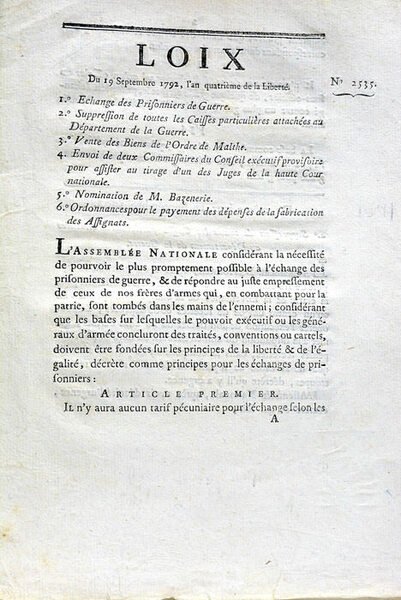 LOIX
Du 19 Septembre 1792, l'an quatrième de la Liberté.
Nº 2535.
1.º Echange des Prisonniers de Guerre.
2.º Suppression de toutes les Caisses particulières attachées au
Département de la Guerre.
3.º Vente des Biens de l'Ordre de Malthe.
4. Envoi de deux Commissaires du Conseil exécutif provisoire
pour assister au tirage d'un des Juges de la haute Cour
nationale.
5.º Nomination de M. Bazenerie.
6.º Ordonnances pour le payement des dépenses de la fabrication
des Assignats.
L'ASSEMBLÉE NATIONALE considérant la nécessité
de pourvoir le plus promptement possible à l'échange des
prisonniers de guerre, & de répondre au juste empressement
de ceux de nos frères d'armes qui, en combattant pour la
patrie, sont tombés dans les mains de l'ennemi; considérant
que les bases sur lesquelles le pouvoir exécutif ou les géné-
raux d'armée concluront des traités, conventions ou cartels,
doivent être fondées sur les principes de la liberté & de l'é-
galité, décrète comme principes pour les échanges de pri-
sonniers :
ARTICLE PREMIER.
IL n'y aura aucun tarif pécuniaire pour l'échange selon les
A